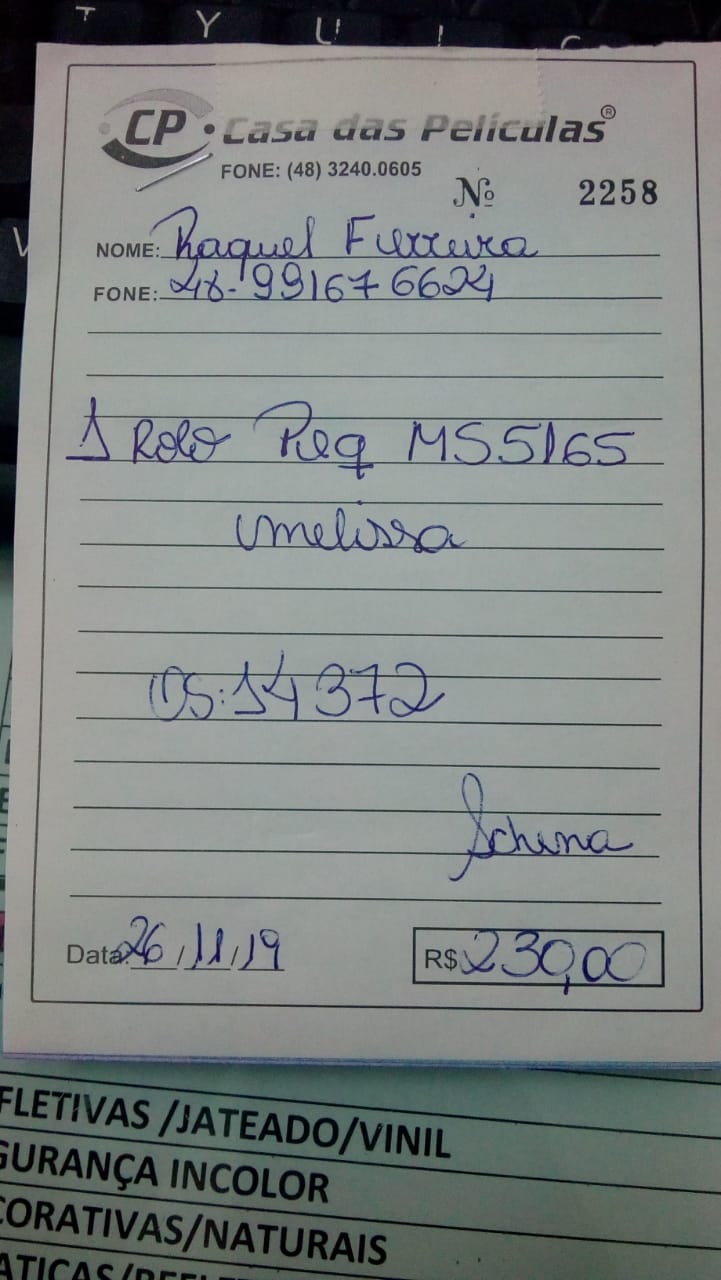 T Y U I
CP Casa das Películas®
FONE: (48) 3240.0605
Nº 2258
NOME: Raquel Ferreira
FONE: 48-99167 6624
1 Rolo Peq MS5165
melissa
OS: 14372
Schena
Data: 26/11/19
R$ 230,00
FLETIVAS /JATEADO/VINIL
GURANÇA INCOLOR
CORATIVAS/NATURAIS